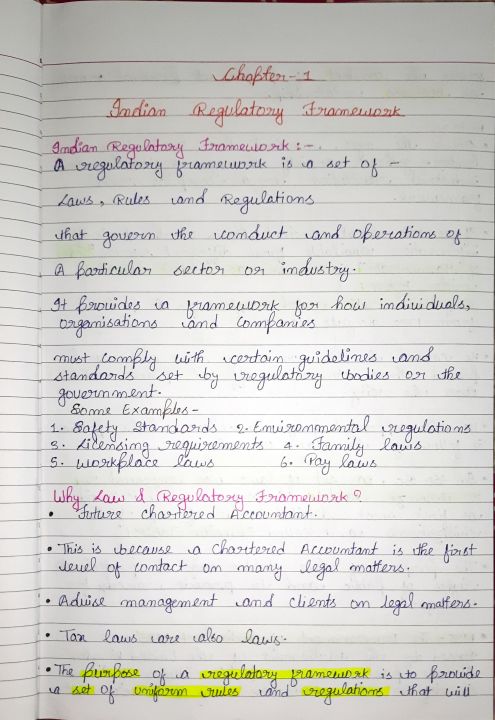 Chapter-1
Indian Regulatory Framework
Indian Regulatory Framework :-
A regulatory framework is a set of -
Laws, Rules and Regulations
that govern the conduct and operations of
A particular sector or industry.
It provides a framework for how individuals,
organisations and companies
must comply with certain guidelines and
standards set by regulatory bodies or the
government.
Some Examples-
1. Safety Standards 2. Environmental regulations
3. Licensing requirements 4. Family laws
5. Workplace laws 6. Pay laws
Why Law & Regulatory Framework?
• Future Chartered Accountant.
• This is because a Chartered Accountant is the first
level of contact on many legal matters.
• Advise management and clients on legal matters.
• Tax laws are also laws.
• The purpose of a regulatory framework is to provide
a set of uniform rules and regulations that will